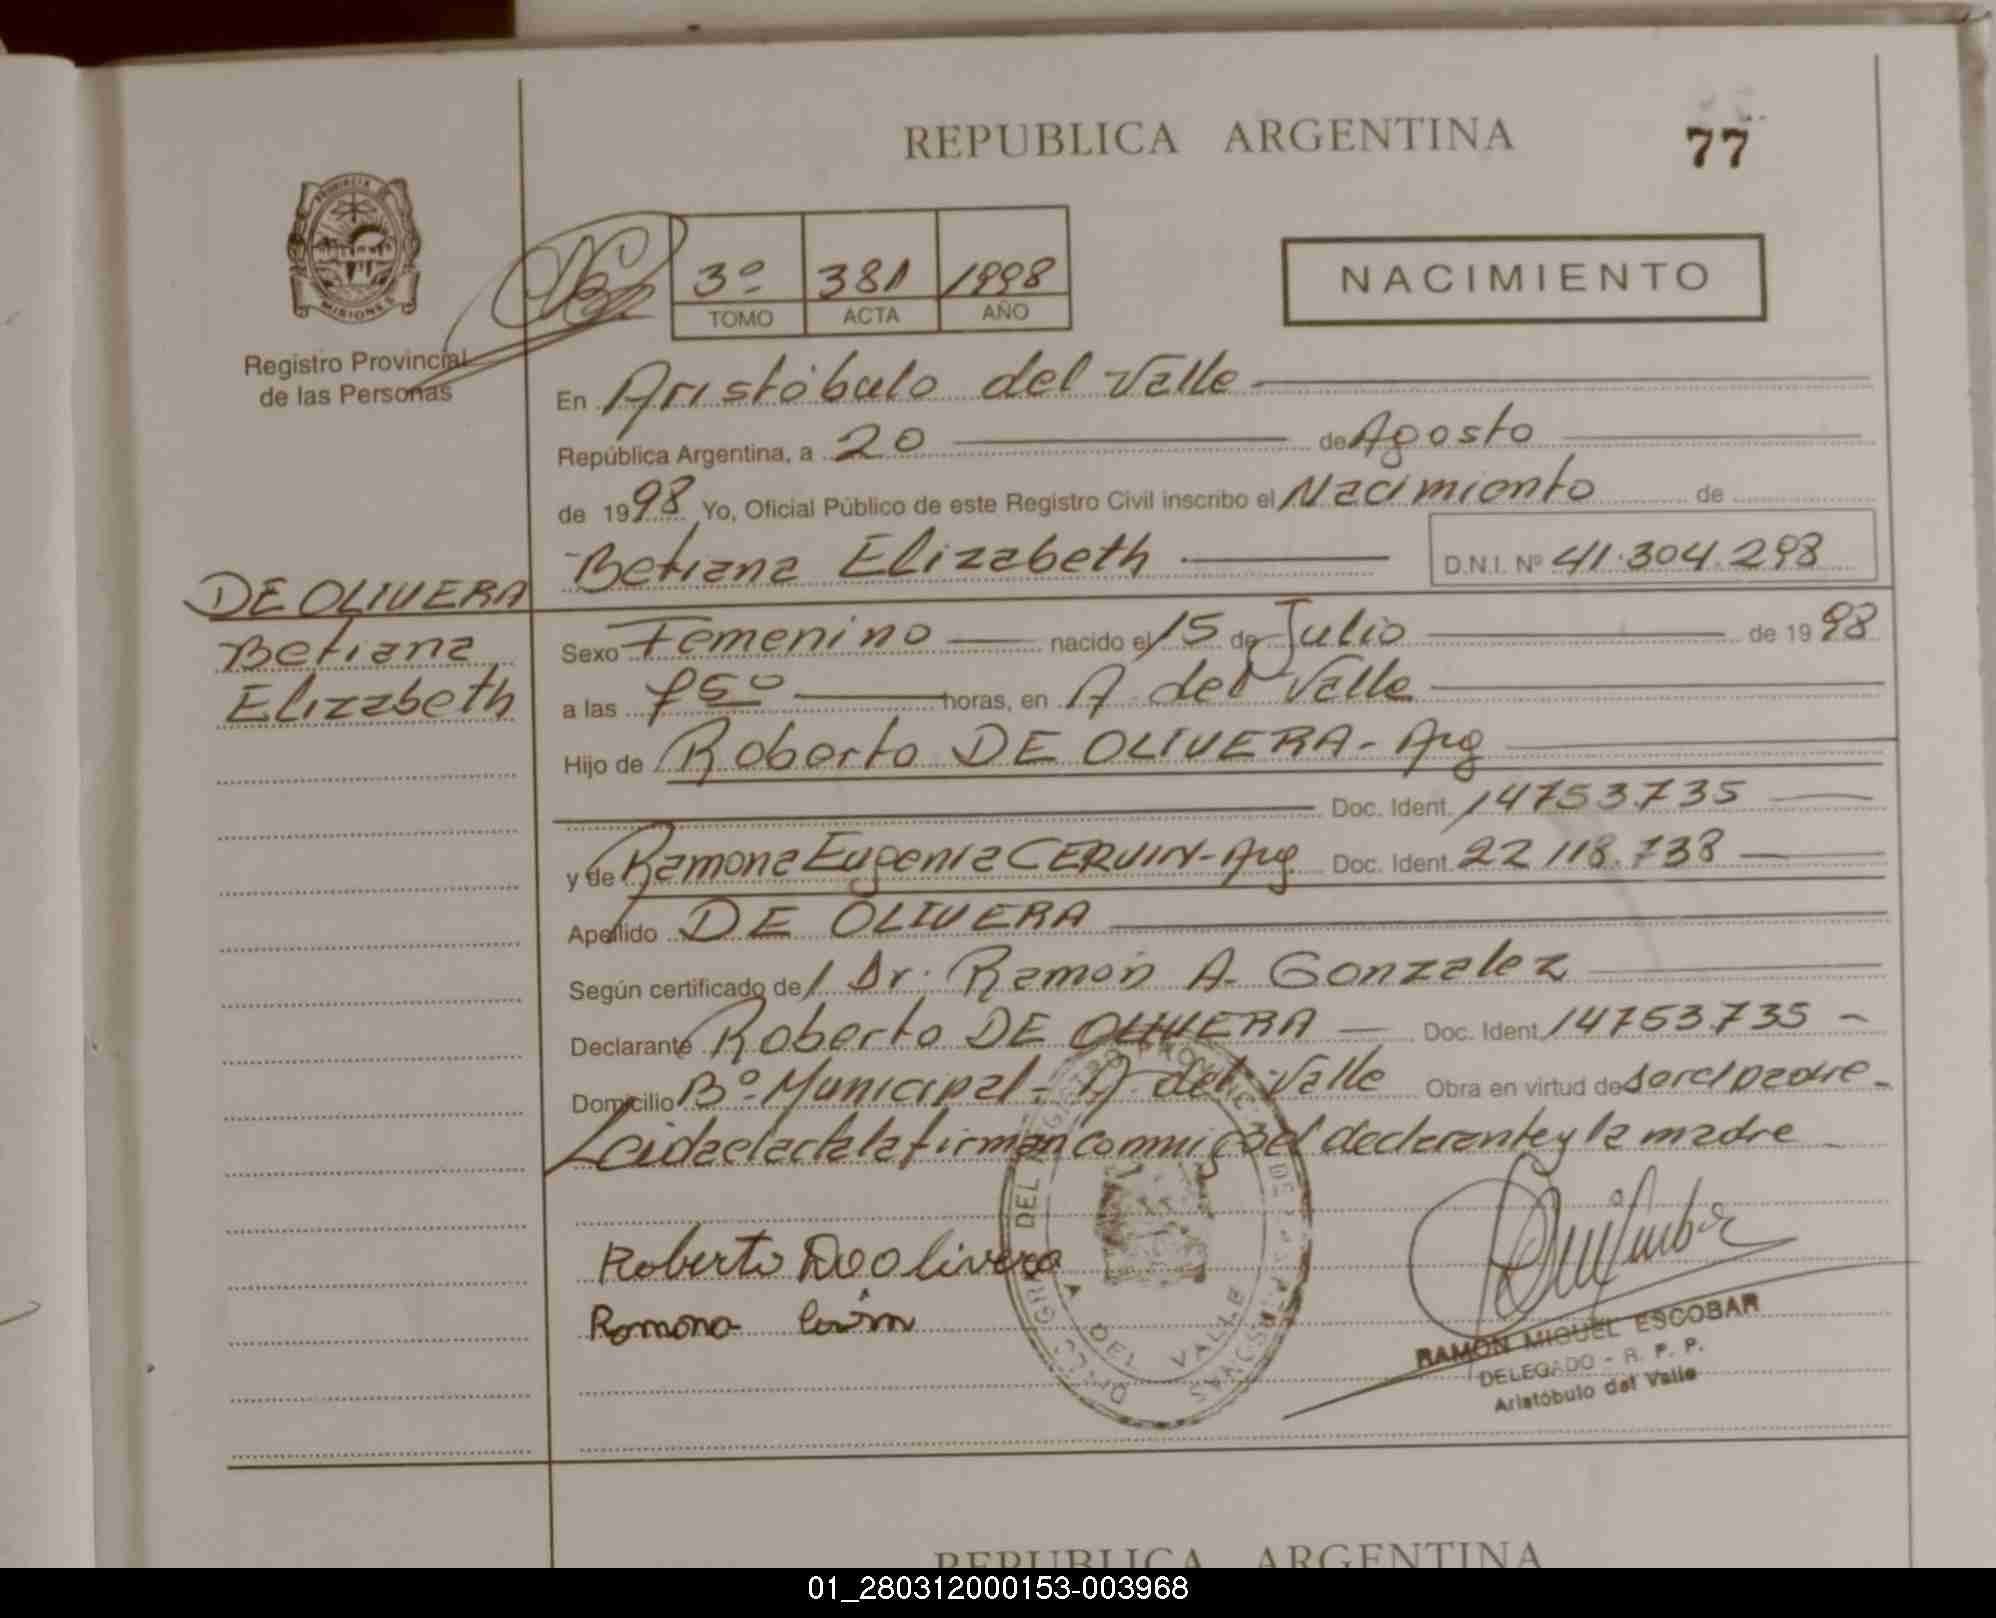 REPUBLICA ARGENTINA
77
PROVINCIA DE
MISIONES
Registro Provincial
de las Personas
3º 381 1998
TOMO ACTA AÑO
NACIMIENTO
En Aristóbulo del Valle
República Argentina, a 20 de Agosto
de 1998 Yo, Oficial Público de este Registro Civil inscribo el Nacimiento de
Betiana Elizabeth D.N.I. Nº 41.304.298
DE OLIVERA
Betiana
Elizabeth
Sexo Femenino nacido el 15 de Julio de 1998
a las horas, en A. del Valle
Hijo de Roberto DE OLIVERA - Arg
Doc. Ident. 14753.735
y de Ramona Eugenia CERVIN - Arg. Doc. Ident. 22.118.738
Apellido DE OLIVERA
Según certificado de/ Dr. Ramón A. Gonzalez
Declarante Roberto DE OLIVERA Doc. Ident. 14753.735 -
Domicilio Bº Municipal - A. del Valle Obra en virtud de ser el padre -
Leida el acta la firman conmigo el declarante y la madre
Roberto De Olivera
Ramona
A. DEL VALLE
RAMON MIGUEL ESCOBAR
DELEGADO - R. P. P.
Aristóbulo del Valle
REPUBLICA ARGENTINA
01_280312000153-003968